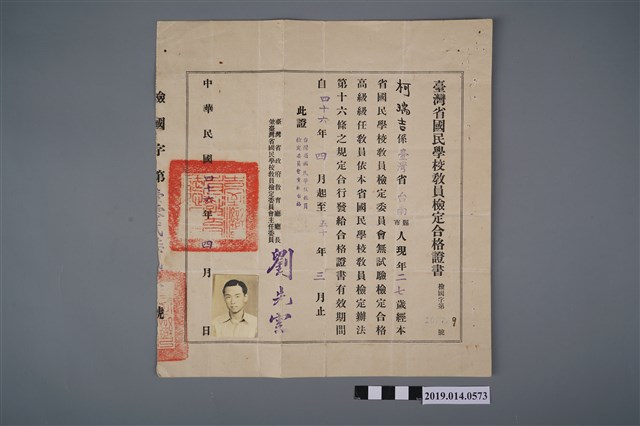 臺灣省國民學校敎員檢定合格證書
檢國字第 號
柯瑞吉係臺灣省台南縣市人現年二七歲經本
省國民學校敎員檢定委員會無試驗檢定合格
高級級任敎員依本省國民學校敎員檢定辦法
第十六條之規定合行發給合格證書有效期間
自四十六年四月起至五十年三月止
此證
臺灣省政府敎育廳廳長
兼臺灣省國民學校敎員檢定委員會主任委員
劉先雲
中華民國四十六年四月 日
檢國字第 號
2019.014.0573